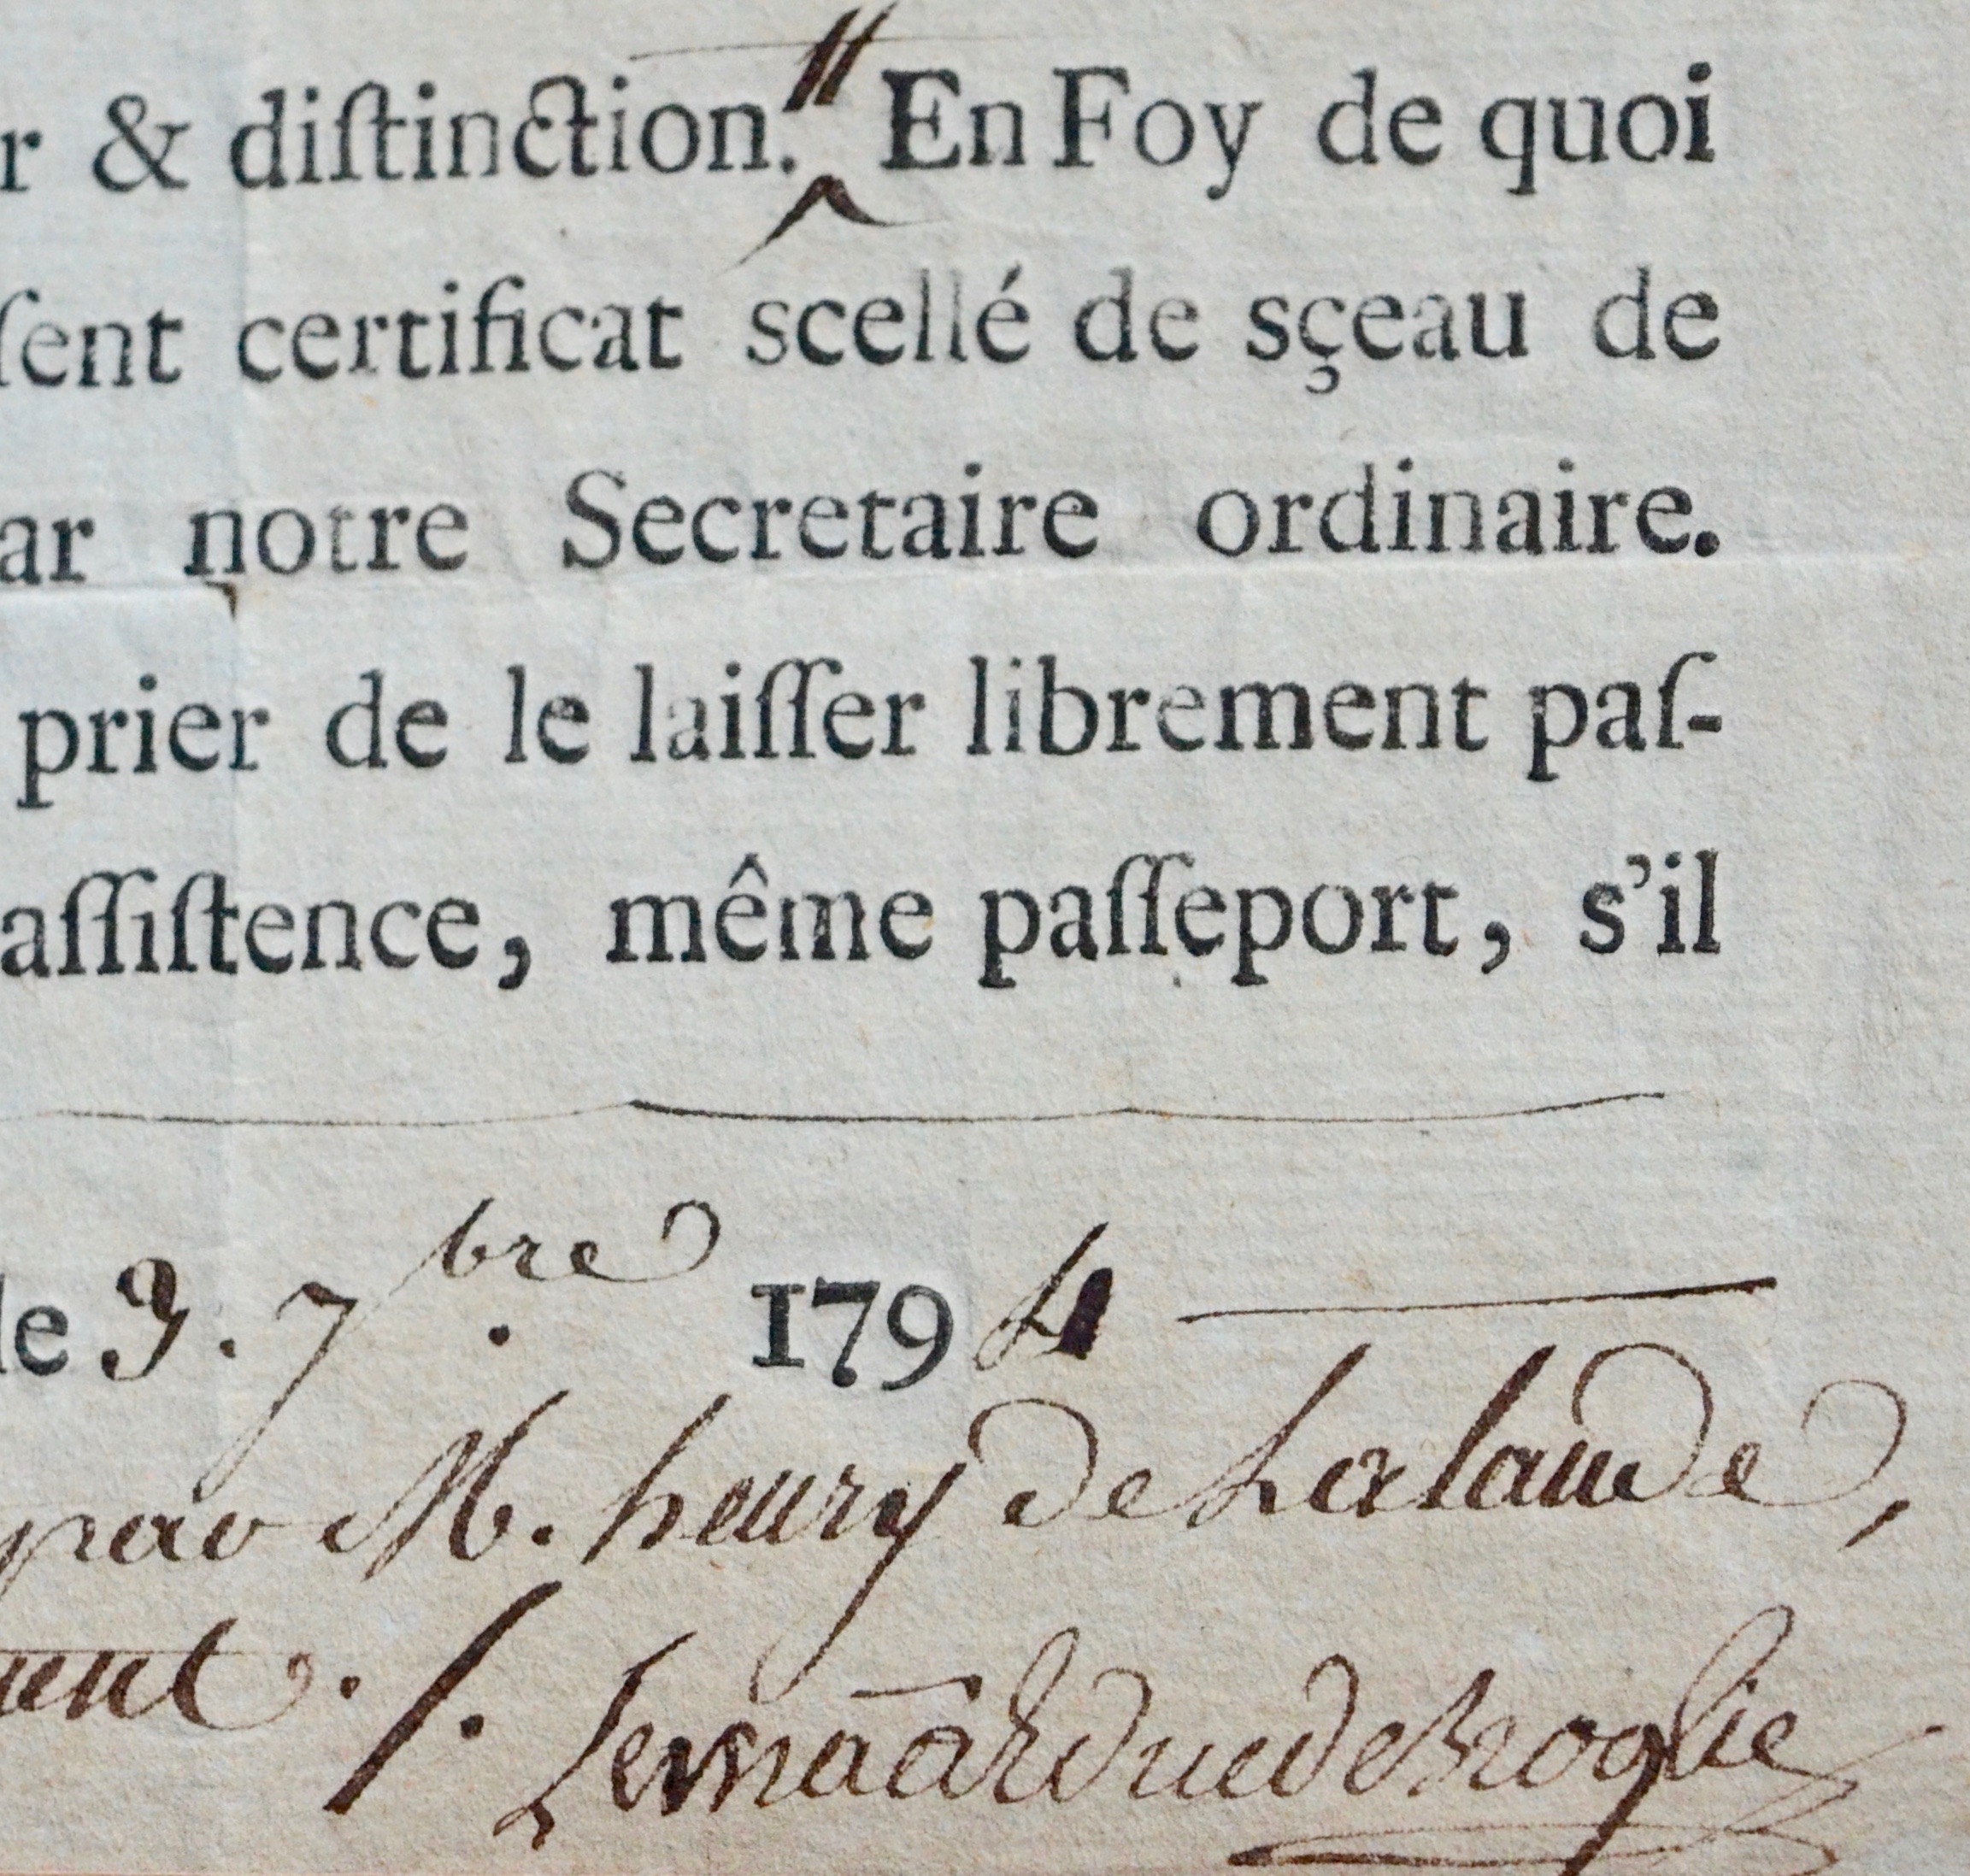 r & diſtinction.// En Foy de quoi
ſent certificat scellé de sçeau de
ar notre Secretaire ordinaire.
prier de le laiſſer librement paſ-
aſſiſtence, même paſſeport, s'il
le 9. 7bre. 1794
par M. henry de Lalande,
ment. /. Le mãal Duc de Broglie